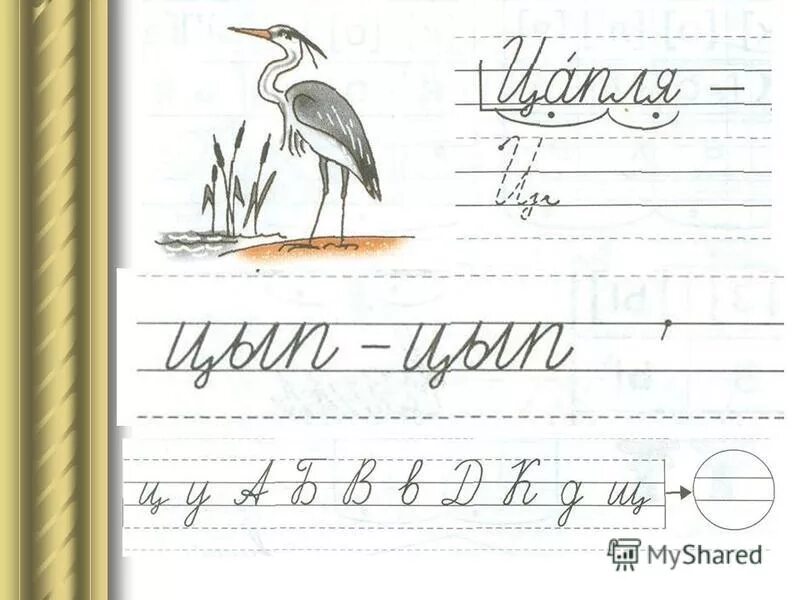 Ца́пля –
Ц
цып – цып
ц у А Б В в Д К д щ
MyShared